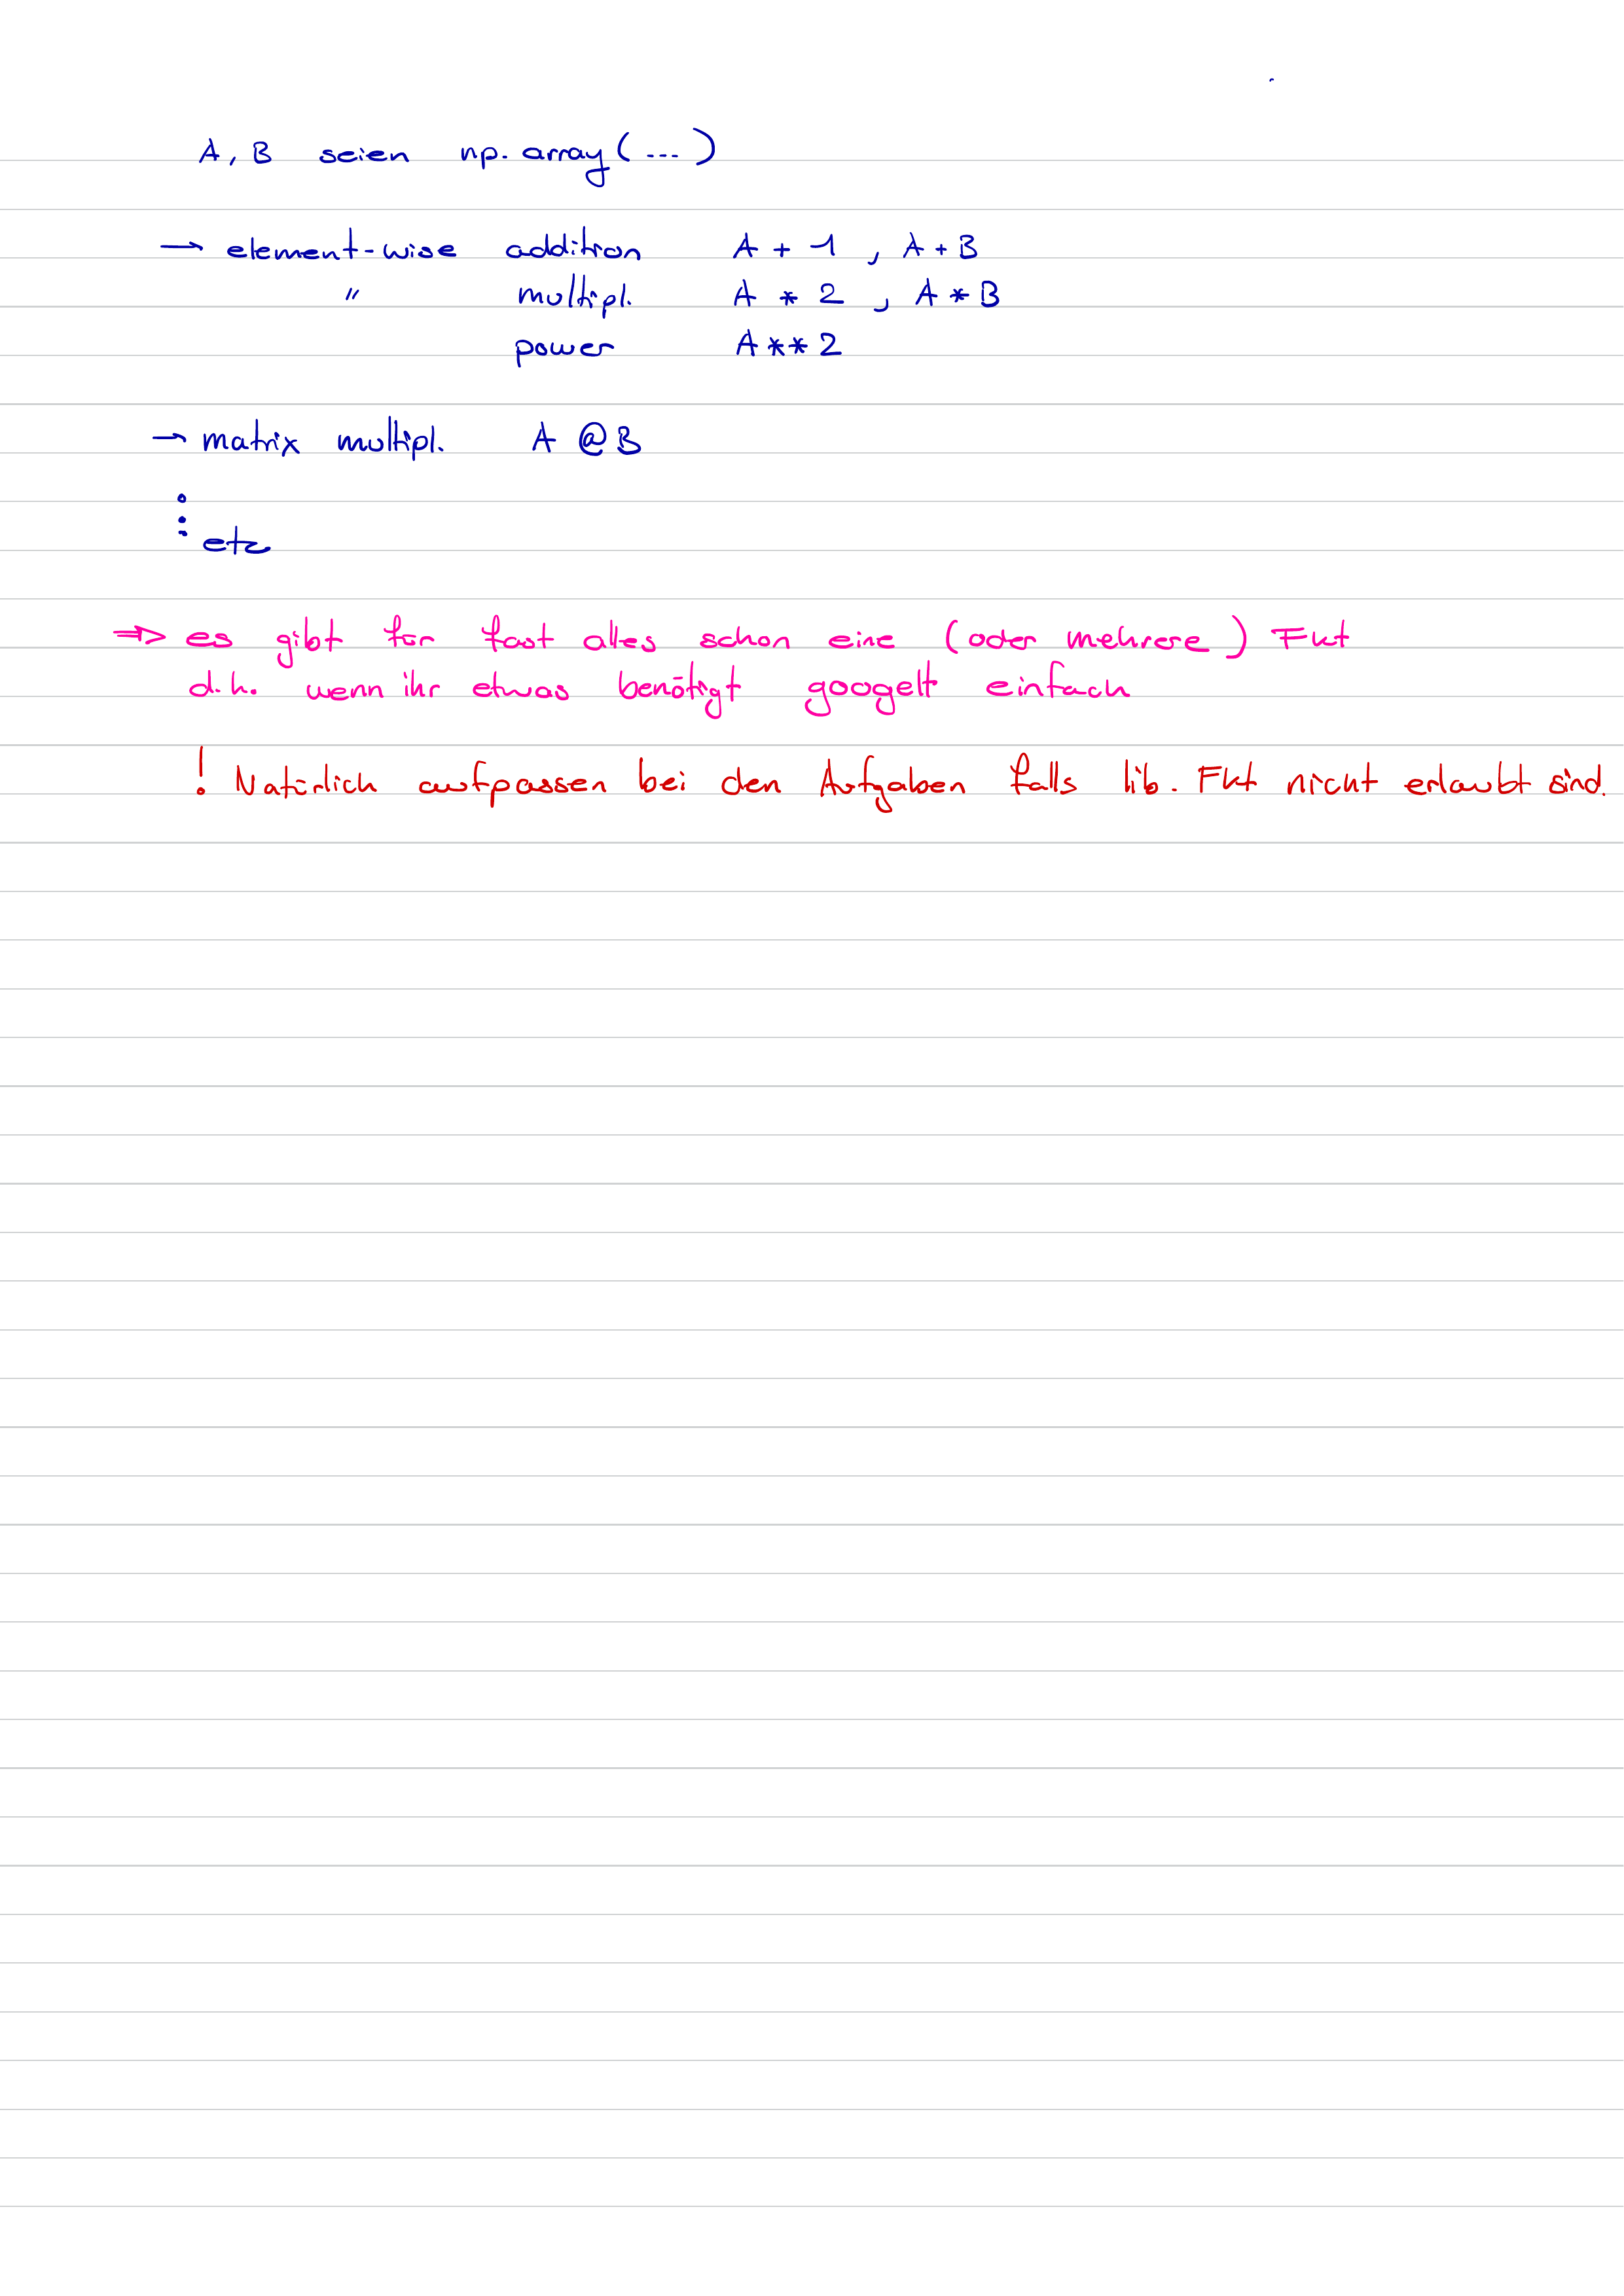 A, B seien np.array(...)
→ element-wise addition A + 1 , A + B
" multipl. A * 2 , A * B
power A**2
→ matrix multipl. A @ B
⋮ etc
⇒ es gibt für fast alles schon eine (oder mehrere) Fkt
d.h. wenn ihr etwas benötigt googelt einfach
! Natürlich aufpassen bei den Aufgaben falls lib. Fkt nicht erlaubt sind.